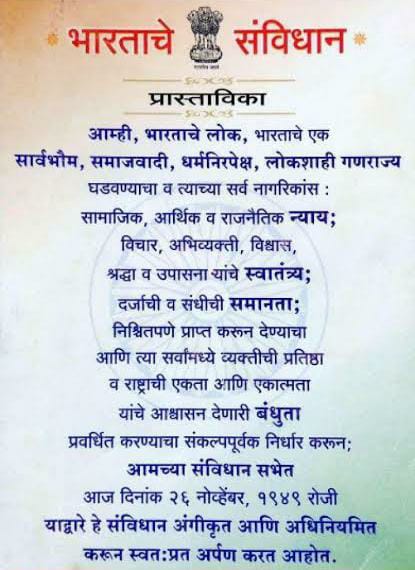 भारताचे संविधान
प्रास्ताविका
आम्ही, भारताचे लोक, भारताचे एक
सार्वभौम, समाजवादी, धर्मनिरपेक्ष, लोकशाही गणराज्य
घडवण्याचा व त्याच्या सर्व नागरिकांस :
सामाजिक, आर्थिक व राजनैतिक न्याय;
विचार, अभिव्यक्ती, विश्वास,
श्रद्धा व उपासना यांचे स्वातंत्र्य;
दर्जाची व संधीची समानता;
निश्चितपणे प्राप्त करून देण्याचा
आणि त्या सर्वांमध्ये व्यक्तीची प्रतिष्ठा
व राष्ट्राची एकता आणि एकात्मता
यांचे आश्वासन देणारी बंधुता
प्रवर्धित करण्याचा संकल्पपूर्वक निर्धार करून;
आमच्या संविधान सभेत
आज दिनांक २६ नोव्हेंबर, १९४९ रोजी
याद्वारे हे संविधान अंगीकृत आणि अधिनियमित
करून स्वत:प्रत अर्पण करत आहोत.